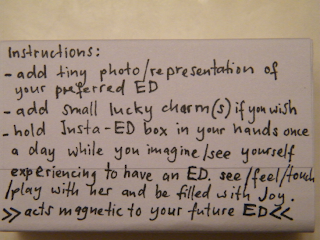 Instructions:
- add tiny photo/representation of
your preferred ED
- add small lucky charm(s) if you wish
- hold Insta-ED box in your hands once
a day while you imagine/see yourself
experiencing to have an ED. see/feel/touch
/play with her and be filled with Joy.
>> acts magnetic to your future ED <<